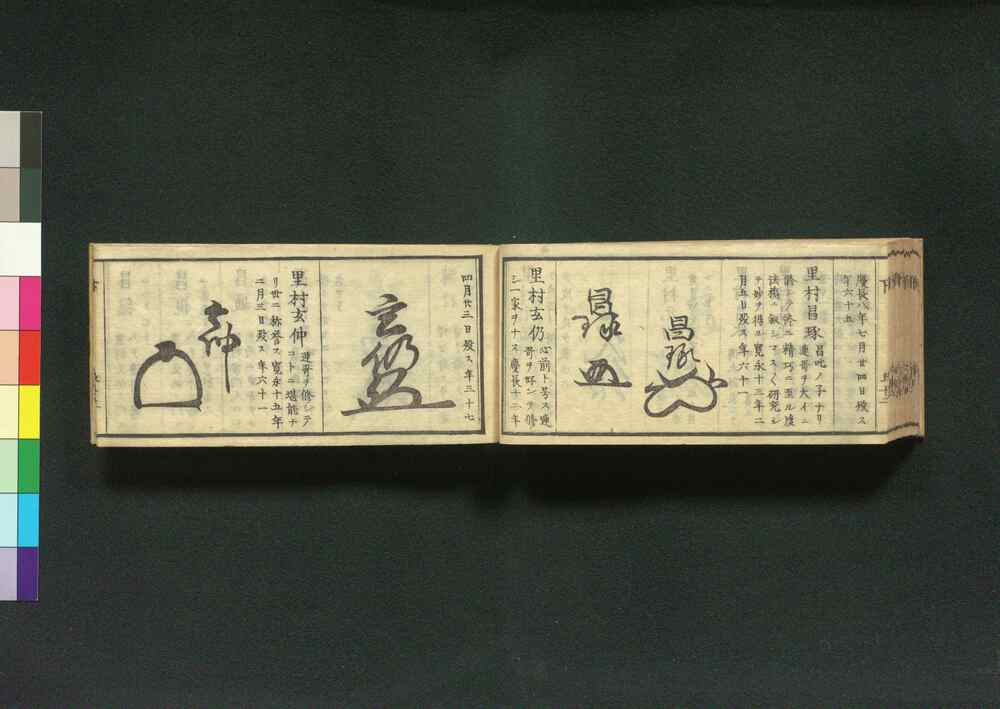 慶長八年七月廿四日歿ス
年六十五
里村昌琢
昌叱ノ子ナリ
連哥ヲ大イニ
ヲ妙ヲ得ル寛永十三年二
月五日歿ス年六十一
昌琢
昌琢
里村玄仍
心前ト号ス連
哥ヲ好シテ修
シ一家ヲナス慶長十二年
四月廿三日歿ス年三十七
玄仍
里村玄仲
連哥ヲ修シテ
コトニ堪能ナ
リ世ニ称誉ス寛永十五年
二月三日歿ス年六十一
玄仲